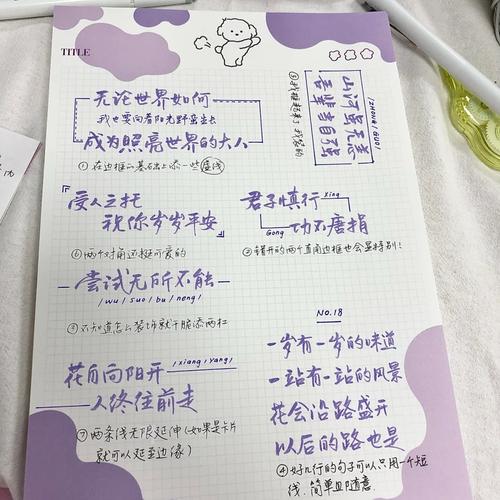 TITLE
无论世界如何
我也要向着阳光野蛮生长
成为照亮世界的大人
①在边框的基础上添一些虚线
山河虽无恙
吾辈当自强
/ZHONG/GUO/
⑤
受人之托
祝你岁岁平安
⑥两个对角还挺可爱的
君子慎行
Xing
Gong
功不唐捐
②错开的两个直角边框也会显特别!
尝试无所不能
/wu/suo/bu/neng/
③不知道怎么装饰就干脆添两杠
花自向阳开
/xiang/yang/
人终往前走
⑦两条线无限延伸(如果是卡片
就可以延至边缘)
NO.18
一岁有一岁的味道
一站有一站的风景
花会沿路盛开
以后的路也是
④好几行的句子可以只用一个短
线,简单且随意